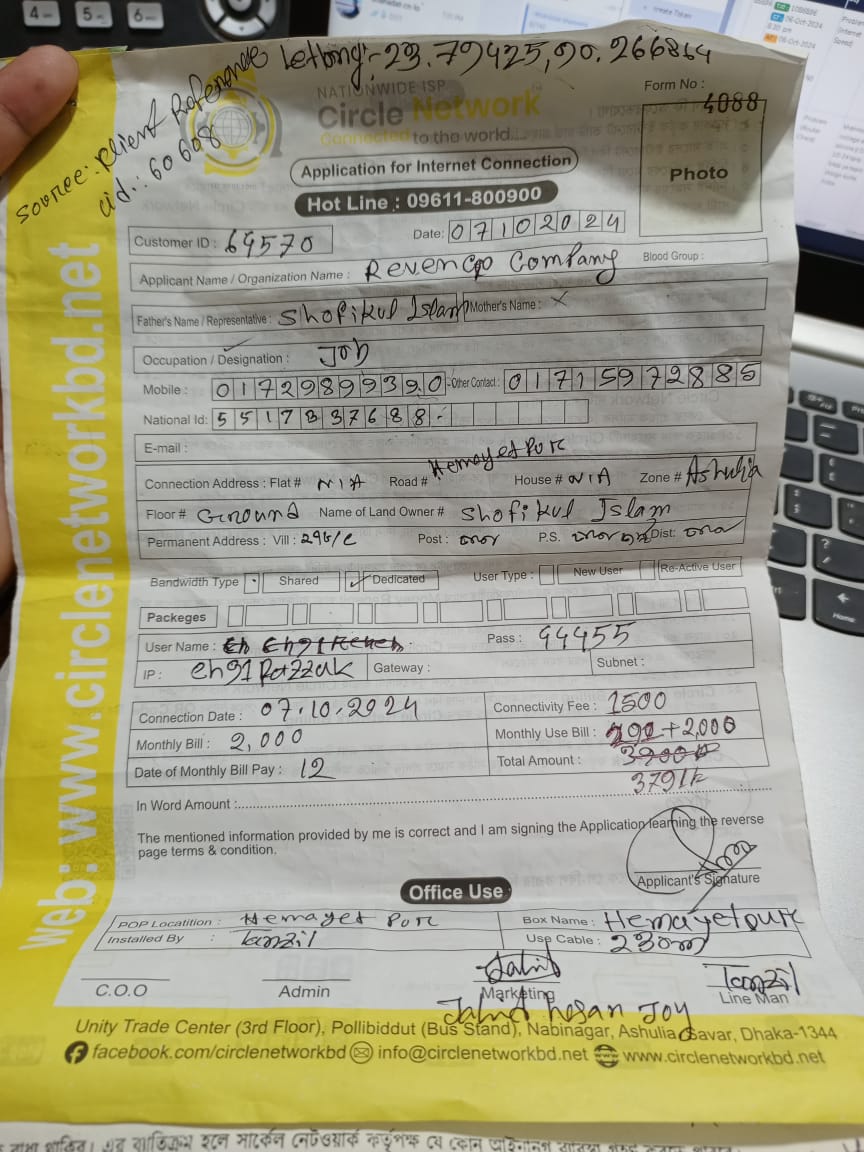 Letlong:- 23.79425,90.266864
source: Client Reference
cid.: 60608
NATIONWIDE ISP
Circle Network
Connected to the world...
Form No :
4088
Photo
Application for Internet Connection
Hot Line : 09611-800900
Customer ID : 64570
Date: 07102024
Applicant Name / Organization Name : Revengo Company Blood Group :
Father's Name / Representative : Shofikul Islam Mother's Name : X
Occupation / Designation : Job
Mobile : 01729899390 Other Contact : 01715972885
National Id: 5517337688
E-mail :
Connection Address : Flat # N/A Road # Hemayetpur House # N/A Zone # Ashulia
Floor # Ground Name of Land Owner # Shofikul Islam
Permanent Address : Vill : Post : P.S. Dist:
Bandwidth Type Shared Dedicated User Type : New User Re-Active User
Packeges
User Name : Pass : 44455
IP: eng1Razzak Gateway : Subnet :
Connection Date : 07.10.2024 Connectivity Fee : 1500
Monthly Bill : 2,000 Monthly Use Bill : +2,000
Date of Monthly Bill Pay : 12 Total Amount :
3791k
In Word Amount :
The mentioned information provided by me is correct and I am signing the Application learning the reverse
page terms & condition.
Applicant's Signature
Office Use
POP Locatition : Hemayet Pur Box Name : Hemayetpur
Installed By : Tanzil Use Cable : 230m
C.O.O Admin Marketing Tanzil Line Man
Jahid hosan Joy
Unity Trade Center (3rd Floor), Pollibiddut (Bus Stand), Nabinagar, Ashulia Savar, Dhaka-1344
facebook.com/circlenetworkbd info@circlenetworkbd.net www.circlenetworkbd.net
web: www.circlenetworkbd.net